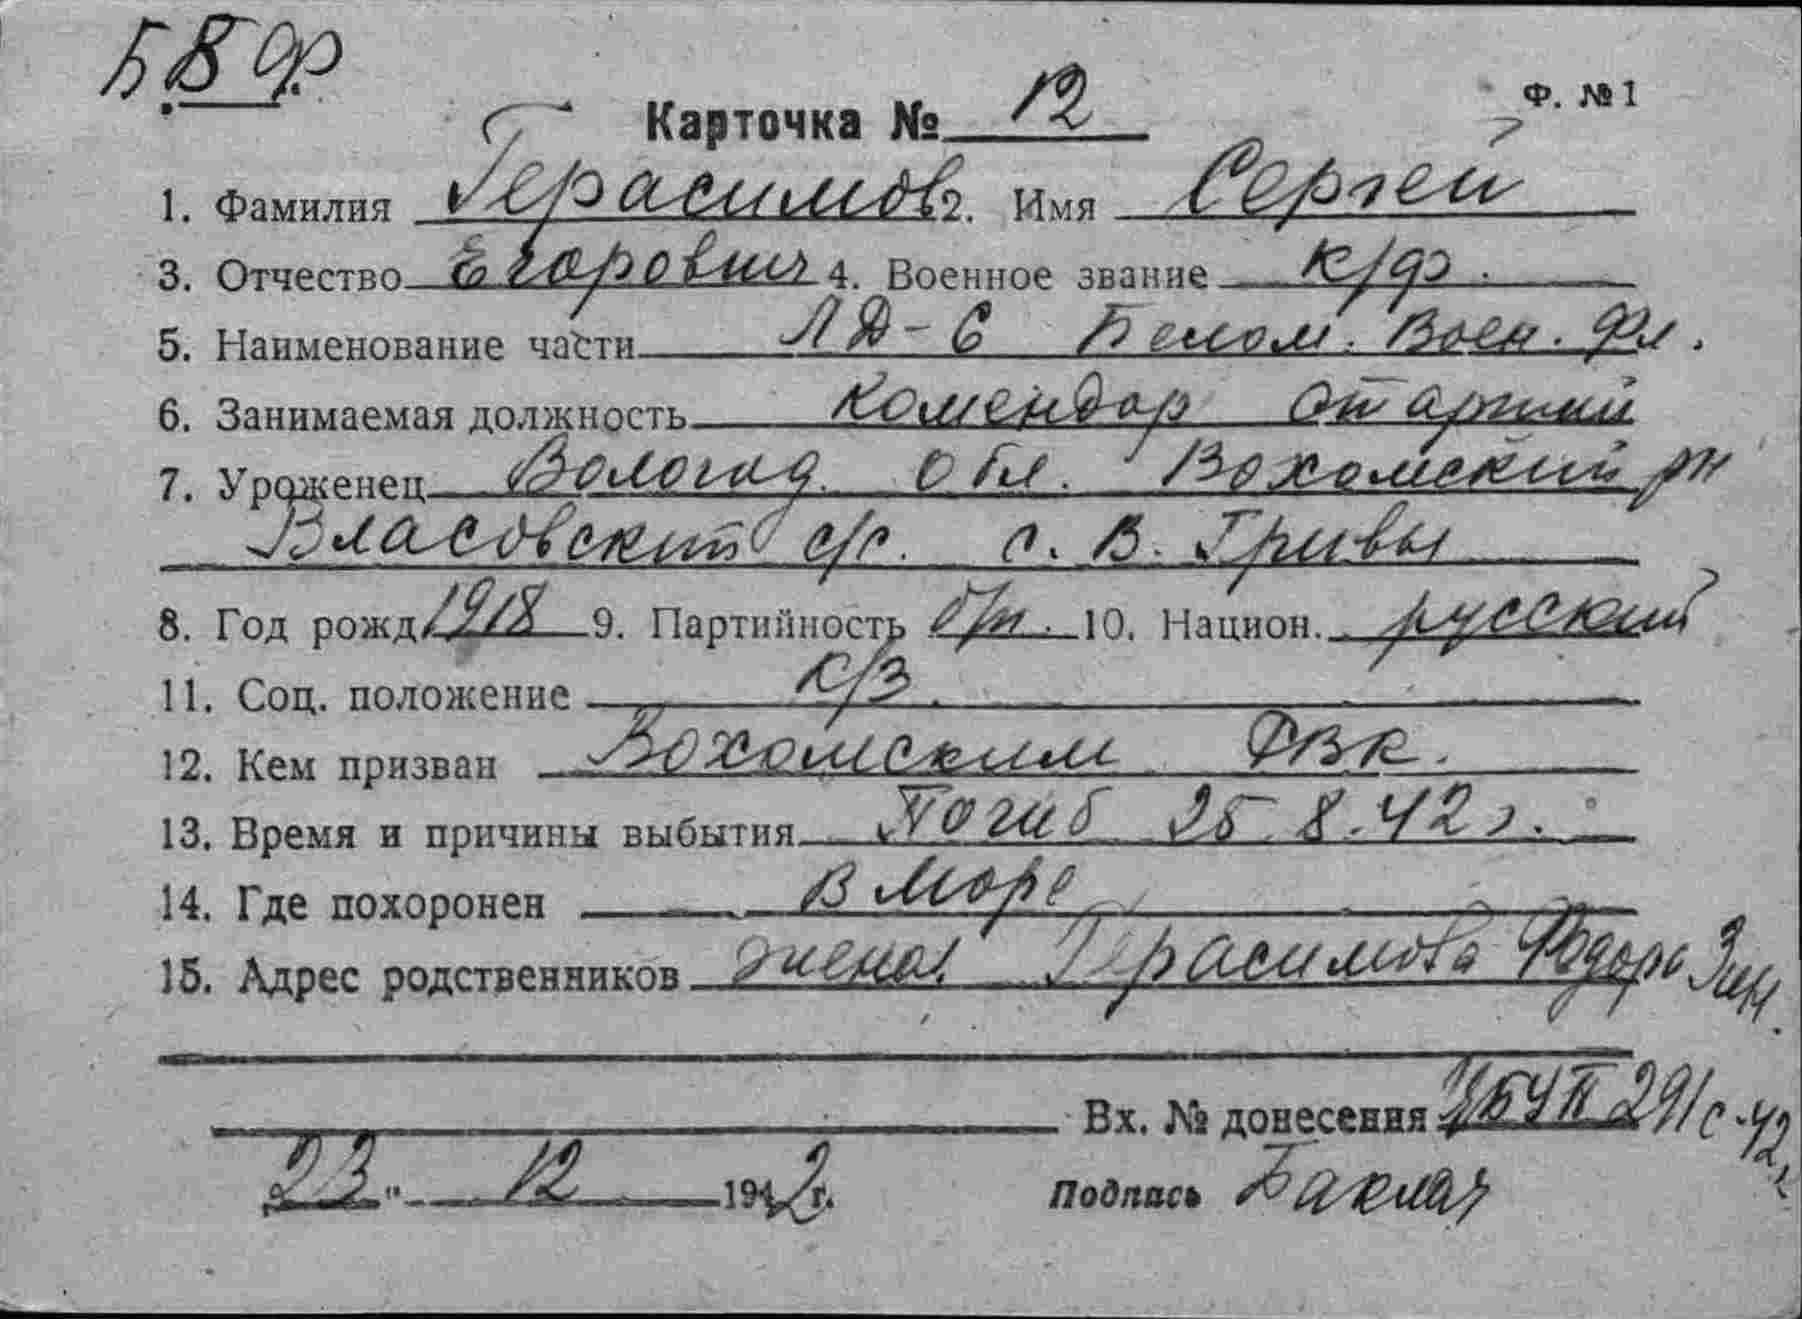 БВФ.
Ф. №1
Карточка № 12
1. Фамилия Герасимов 2. Имя Сергей
3. Отчество Егорович 4. Военное звание к/ф.
5. Наименование части ЛД-6 Белом. Воен. Фл.
6. Занимаемая должность комендор старший
7. Уроженец Вологод. обл. Вохомский рн
Власовский с/с. с. В. Гривы
8. Год рожд 1918 9. Партийность б/п. 10. Национ. русский
11. Соц. положение к/з.
12. Кем призван Вохомским РВК.
13. Время и причины выбытия Погиб 25.8.42 г.
14. Где похоронен в море
15. Адрес родственников жена. Герасимова Федора Зин.
Вх. № донесения 291с-42г
„23" 12 1942 г. Подпись Баклач